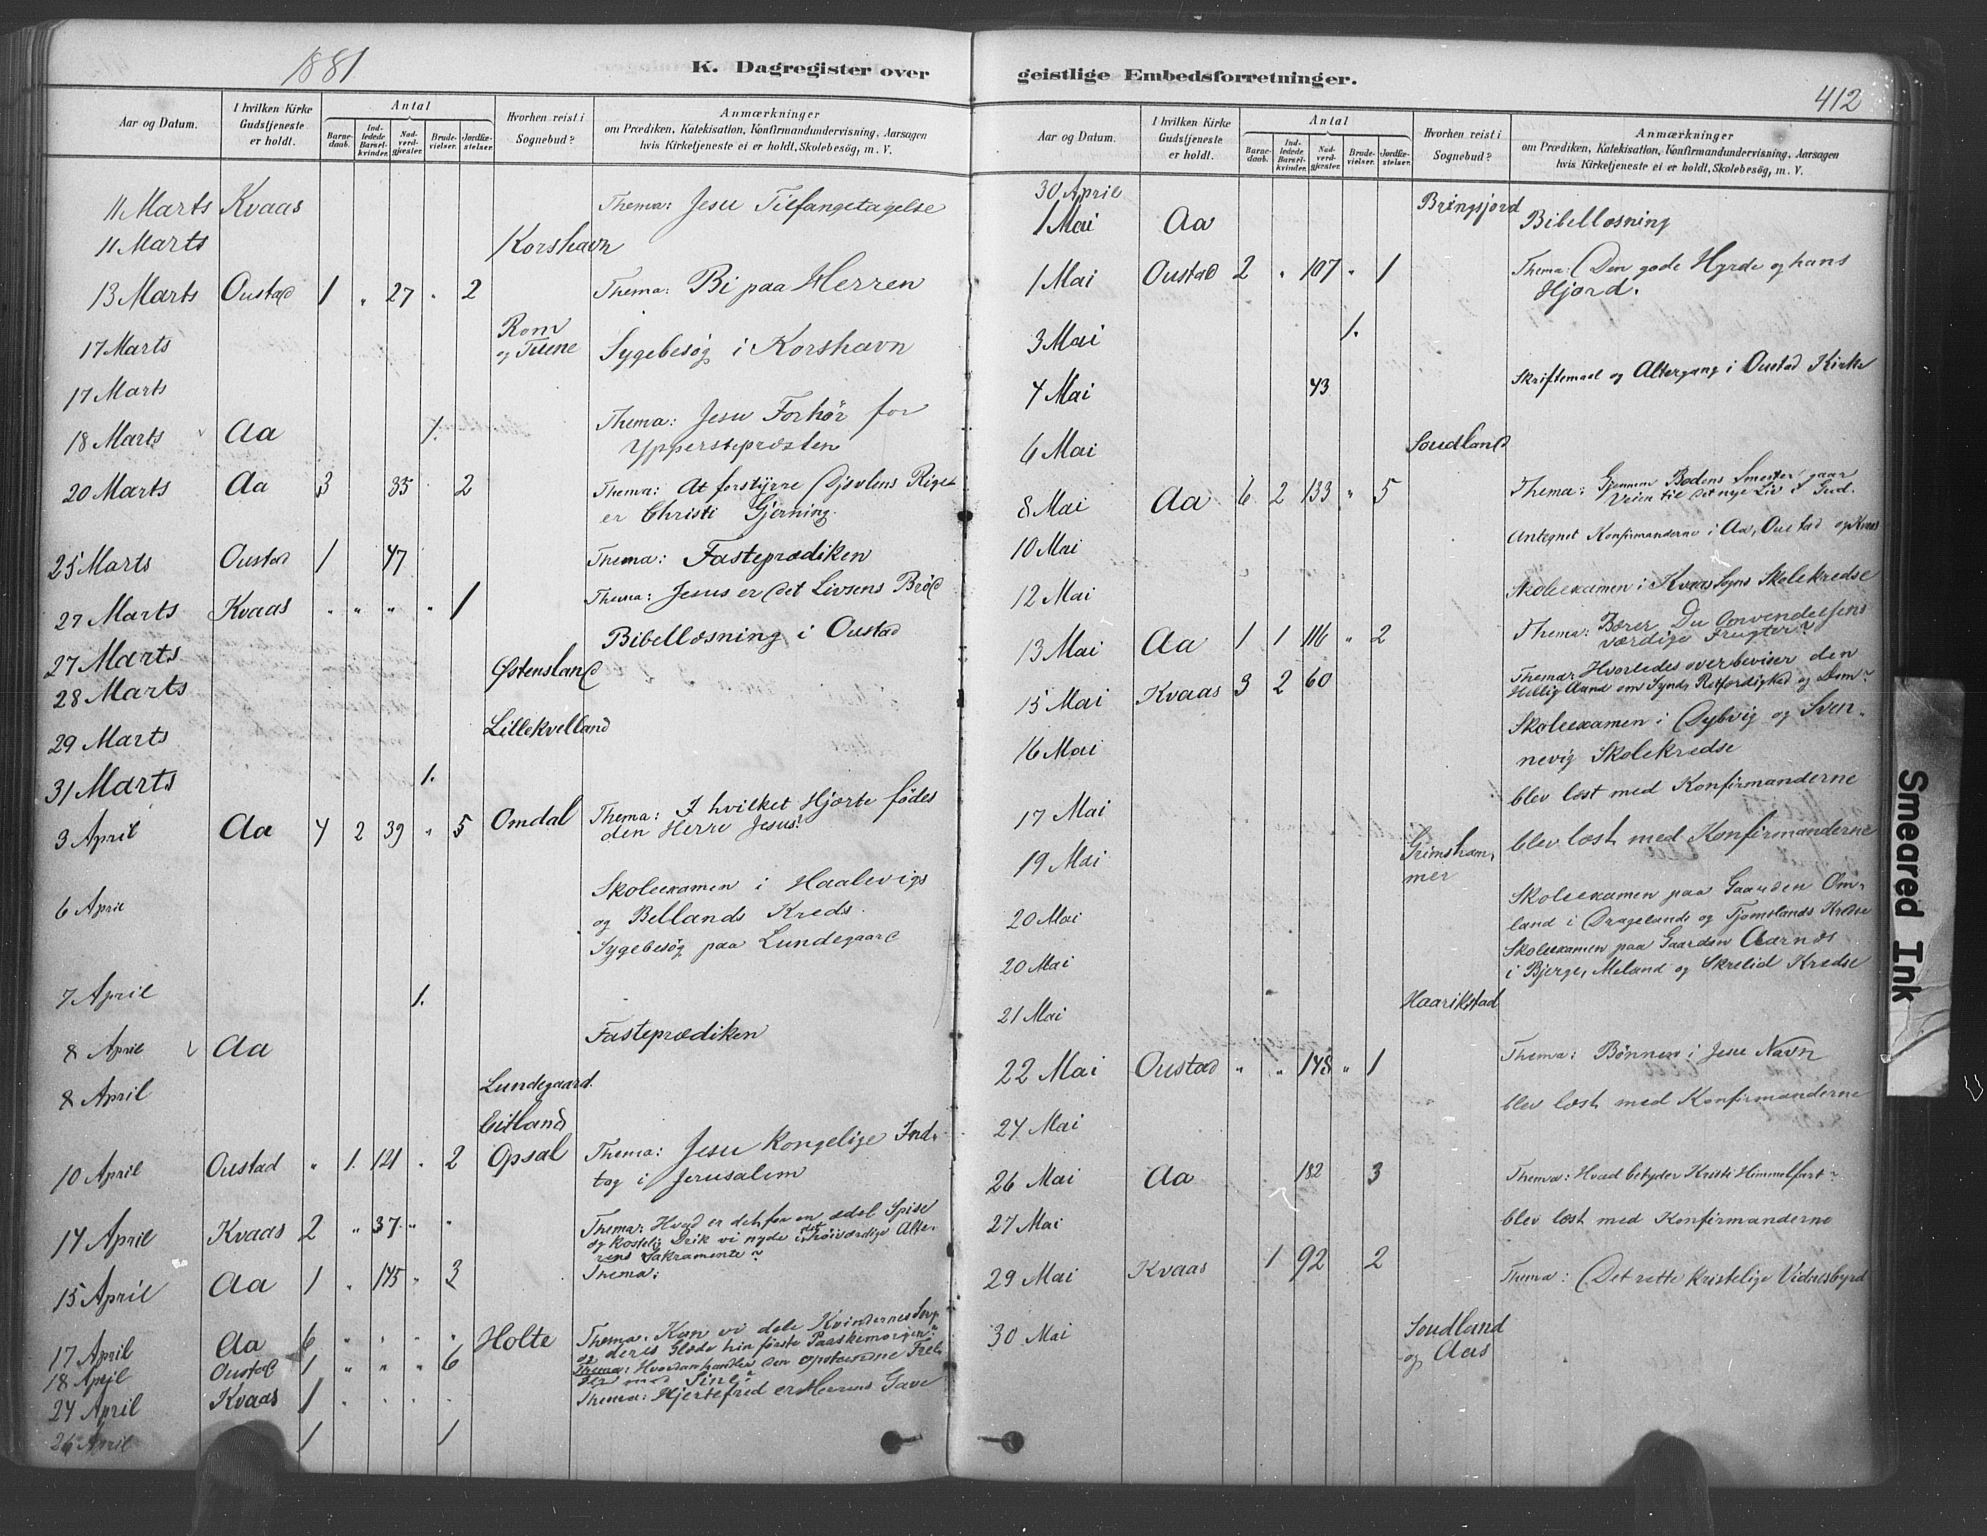 1881
K. Dagregister over
Aar og Datum. I hvilken Kirke Gudstjeneste er holdt. Antal Barne-daab. Ind-ledede Barsel-kvinder. Nad-verd-gjæster. Brude-vielser. Jordfæ-stelser. Hvorhen reist i Sognebud? Anmærkninger om Prædiken, Katekisation, Konfirmandundervisning, Aarsagen hvis Kirketjeneste ei er holdt, Skolebesøg, m. V.
11 Marts Kvaas Thema: Jesu Tilfangetagelse
11 Marts Korshavn
13 Marts Oustad 1 " 27 " 2 Thema: Bi paa Herren
17 Marts Rom og Tuene Sygebesøg i Korshavn
17 Marts
18 Marts Aa 1. Thema: Jesu Forhör for
Ypperstepræsten
20 Marts Aa 3 85 2 Thema: At forstyrre Djævlens Rige
er Christi Gjerning.
25 Marts Oustad 1 47 Thema: Fasteprædiken
27 Marts Kvaas " " " " 1 Thema: Jesus er det Livsens Brød
27 Marts Bibellæsning i Oustad
28 Marts Østensland
29 Marts Lillekvelland
31 Marts 1.
3 April Aa 4 2 39 " 5 Omdal Thema: I hvilket Hjerte fødes
den Herre Jesus?
6 April Skoleexamen i Haalevigs
og Bellands Kreds.
Sygebesøg paa Lundegaard
7 April 1.
8 April Aa Fasteprædiken
8 April Lundegaard
Eitland
10 April Oustad " 1. 121 " 2 Opsal Thema: Jesu kongelige Ind-
tog i Jerusalem
14 April Kvaas 2 " 37 " " Thema: Hvad er det for en ædel Spise
og kostelig Drik vi nyde i det høiværdige Alte-
rens Sakramente?
15 April Aa 1 " 145 " 3 Thema:
17 April Aa 6 " " " " Holte Thema: Kan vi dele Kvindernes Sorg
og deres Glæde hin første Paaskemorgen?
18 April Oustad 1 " " " 6 Thema: Hvordan handler den opstandne Frel-
ser med Sine?
24 April Kvaas 1 " " " " Thema: Hjertefred er Herrens Gave
26 April 1 1
geistlige Embedsforretninger.
412
Aar og Datum. I hvilken Kirke Gudstjeneste er holdt. Antal Barne-daab. Ind-ledede Barsel-kvinder. Nad-verd-gjæster. Brude-vielser. Jordfæ-stelser. Hvorhen reist i Sognebud? Anmærkninger om Prædiken, Katekisation, Konfirmandundervisning, Aarsagen hvis Kirketjeneste ei er holdt, Skolebesøg, m. V.
30 April Bringsjord
1 Mai Aa Bibellæsning
1 Mai Oustad 2 " 107 " 1 Thema: Den gode Hyrde og hans
Hjord.
3 Mai 1.
4 Mai 43 Skriftemaal og Altergang i Oustad Kirke
6 Mai Soudland
8 Mai Aa 6 2 133 " 5 Thema: Gjennem Bodens Smerter gaar
Veien til det nye Liv i Gud.
10 Mai Antegnet Konfirmanderne i Aa, Oustad og Kvaas
12 Mai Skoleexamen i Kvaas Sogns Skolekredse
13 Mai Aa 1 1 116 " 2 Thema: Bærer Du Omvendelsens
værdige Frugter?
15 Mai Kvaas 3 2 60 Thema: Hvorledes overbeviser den
Hellig Aand om Synd, Retfærdighed og Dom?
16 Mai Skoleexamen i Dybvig og Sven-
nevig Skolekredse
17 Mai blev læst med Konfirmanderne
19 Mai Grimsham-mer blev læst med Konfirmanderne
20 Mai Skoleexamen paa Gaarden Om-
land i Dragelands og Tjomslands Kredse
20 Mai Skoleexamen paa Gaarden Aarnæs
i Bjerge, Meland og Skrelid Kredse
21 Mai Haarikstad
22 Mai Oustad " " 148 " 1 Thema: Bønnen i Jesu Navn
24 Mai blev læst med Konfirmanderne
26 Mai Aa 182 3 Thema: Hvad betyder Kristi Himmelfart?
27 Mai blev læst med Konfirmanderne
29 Mai Kvaas 1 92 2 Thema: Det rette kristelige Vidnesbyrd
30 Mai Soudland
og Aas
Smeared Ink